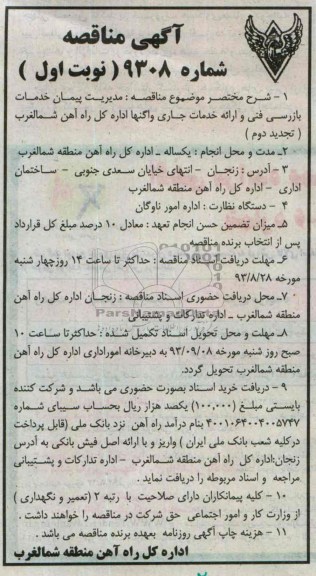 آگهی مناقصه
شماره ۹۳۰۸ ( نوبت اول )
۱ - شرح مختصر موضوع مناقصه : مدیریت پیمان خدمات
بازرسی فنی و ارائه خدمات جاری واگنها اداره کل راه آهن شمالغرب
( تجدید دوم )
۲ـ مدت و محل انجام : یکساله ـ اداره کل راه آهن منطقه شمالغرب
۳ - آدرس : زنجان - انتهای خیابان سعدی جنوبی - ساختمان
اداری - اداره کل راه آهن منطقه شمالغرب
۴ - دستگاه نظارت : اداره امور ناوگان
۵ـ میزان تضمین حسن انجام تعهد : معادل ۱۰ درصد مبلغ کل قرارداد
پس از انتخاب برنده مناقصه
۶ـ مهلت دریافت اسناد مناقصه : حداکثر تا ساعت ۱۴ روز چهار شنبه
مورخه ۹۳/۸/۲۸
۷ـ محل دریافت حضوری اسناد مناقصه : زنجان اداره کل راه آهن
منطقه شمالغرب ـ اداره تدارکات و پشتیبانی
۸ـ مهلت و محل تحویل اسناد تکمیل شده : حداکثر تا ساعت ۱۰
صبح روز شنبه مورخه ۹۳/۰۹/۰۸ به دبیرخانه اموراداری اداره کل راه آهن
منطقه شمالغرب تحویل گردد.
۹ - دریافت خرید اسناد بصورت حضوری می باشد و شرکت کننده
بایستی مبلغ (۱۰۰,۰۰۰) یکصد هزار ریال بحساب سیبای شماره
۴۰۰۱۰۶۴۰۰۴۰۰۵۷۴۷ بنام درآمد راه آهن نزد بانک ملی (قابل پرداخت
درکلیه شعب بانک ملی ایران ) واریز و با ارائه اصل فیش بانکی به آدرس
زنجان:اداره کل راه آهن منطقه شمالغرب - اداره تدارکات و پشتیبانی
مراجعه و اسناد مربوطه را دریافت نماید .
۱۰ - کلیه پیمانکاران دارای صلاحیت با رتبه ۲ (تعمیر و نگهداری )
از وزارت کار و امور اجتماعی حق شرکت در مناقصه را خواهند داشت .
۱۱ - هزینه چاپ آگهی روزنامه بعهده برنده مناقصه می باشد .
اداره کل راه آهن منطقه شمالغرب